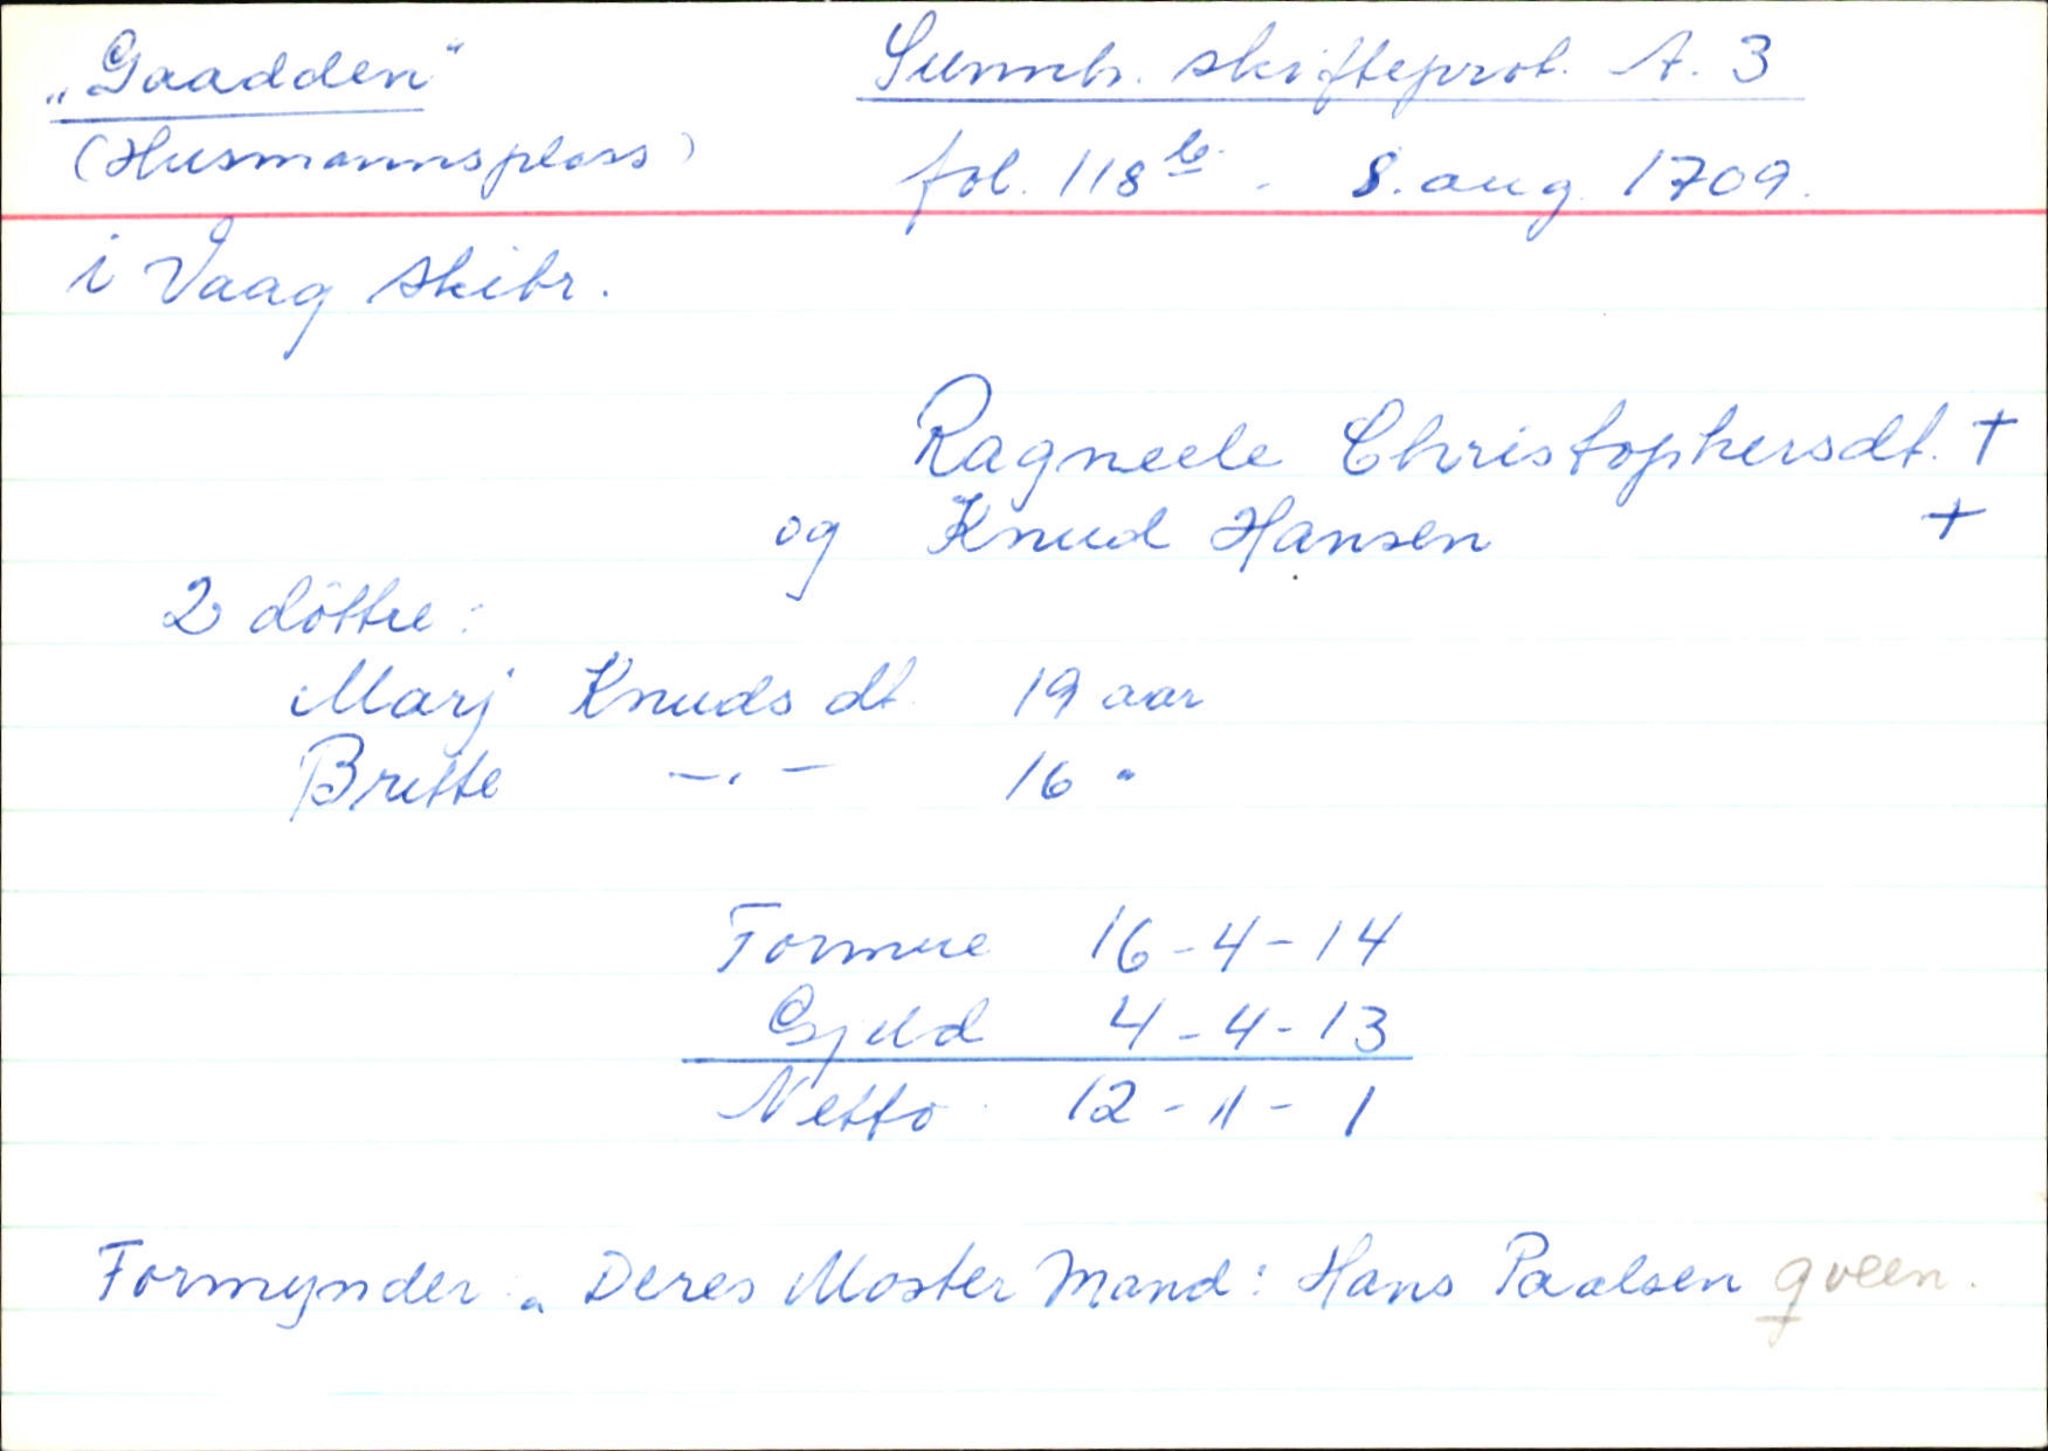 „Gaadden“ Sunnh. skifteprot. A. 3
(Husmannsplass) fol. 118 b. - 8. aug. 1709.
i Vaag skibr.
Ragneele Christophersdt. +
og Knud Hansen +
2 döttre:
Marj Knudsdt. 19 aar
Britte —„— 16 "
Formue 16-4-14
Gjeld 4-4-13
Netto 12-"-1
Formynder „Deres Moster Mand: Hans Paalsen qveen.